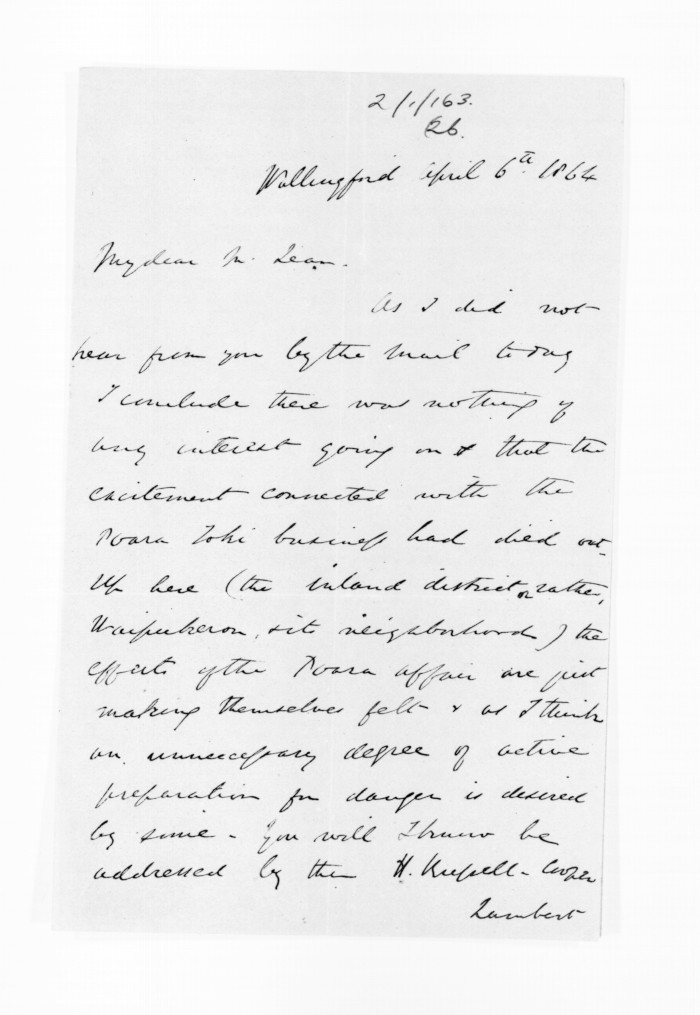 2/1/163.
26.
Wallingford April 6th. 1864
My dear Mc Lean.
As I did not
hear from you by the mail today
I conclude there was nothing of
any interest going on & that the
excitement connected with the
Poara Toki business had died out-
Up here (the inland district or rather,
Waipukerou, & its neighborhood) the
effects of the Poara affair are just
making themselves felt & as I think
an unnecessary degree of active
preparation for danger is desired
by some - You will I know be
addressed by them H. Russell - Cooper
Lambert